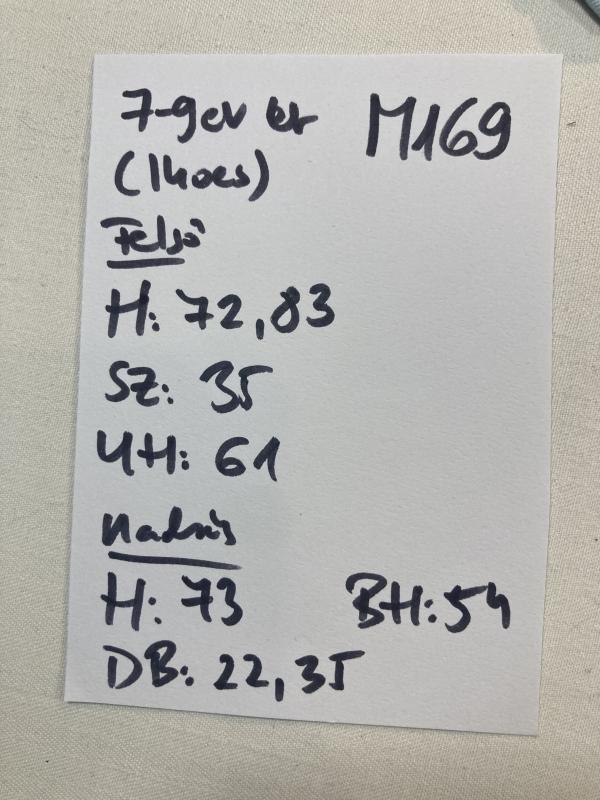 7-9 év kr M169
(Ikoes)
Felső
H: 72,83
SZ: 35
UH: 61
Nadrág
H: 73 BH: 54
DB: 22,35